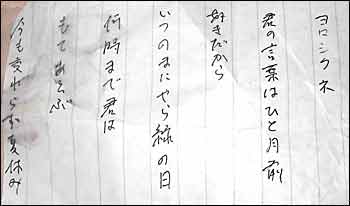 ヨロシクネ
君の言葉はひと月前
好きだから
いつのまにやら緑の日
何時まで君は
もてあそぶ
今も変わらず夏休み